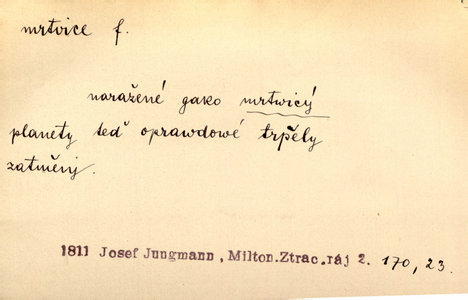 mrtvice f.
naražené gako mrtwicý
planety teď oprawdowé trpěly
zatměnj.
1811 Josef Jungmann, Milton.Ztrac.ráj 2. 170, 23.